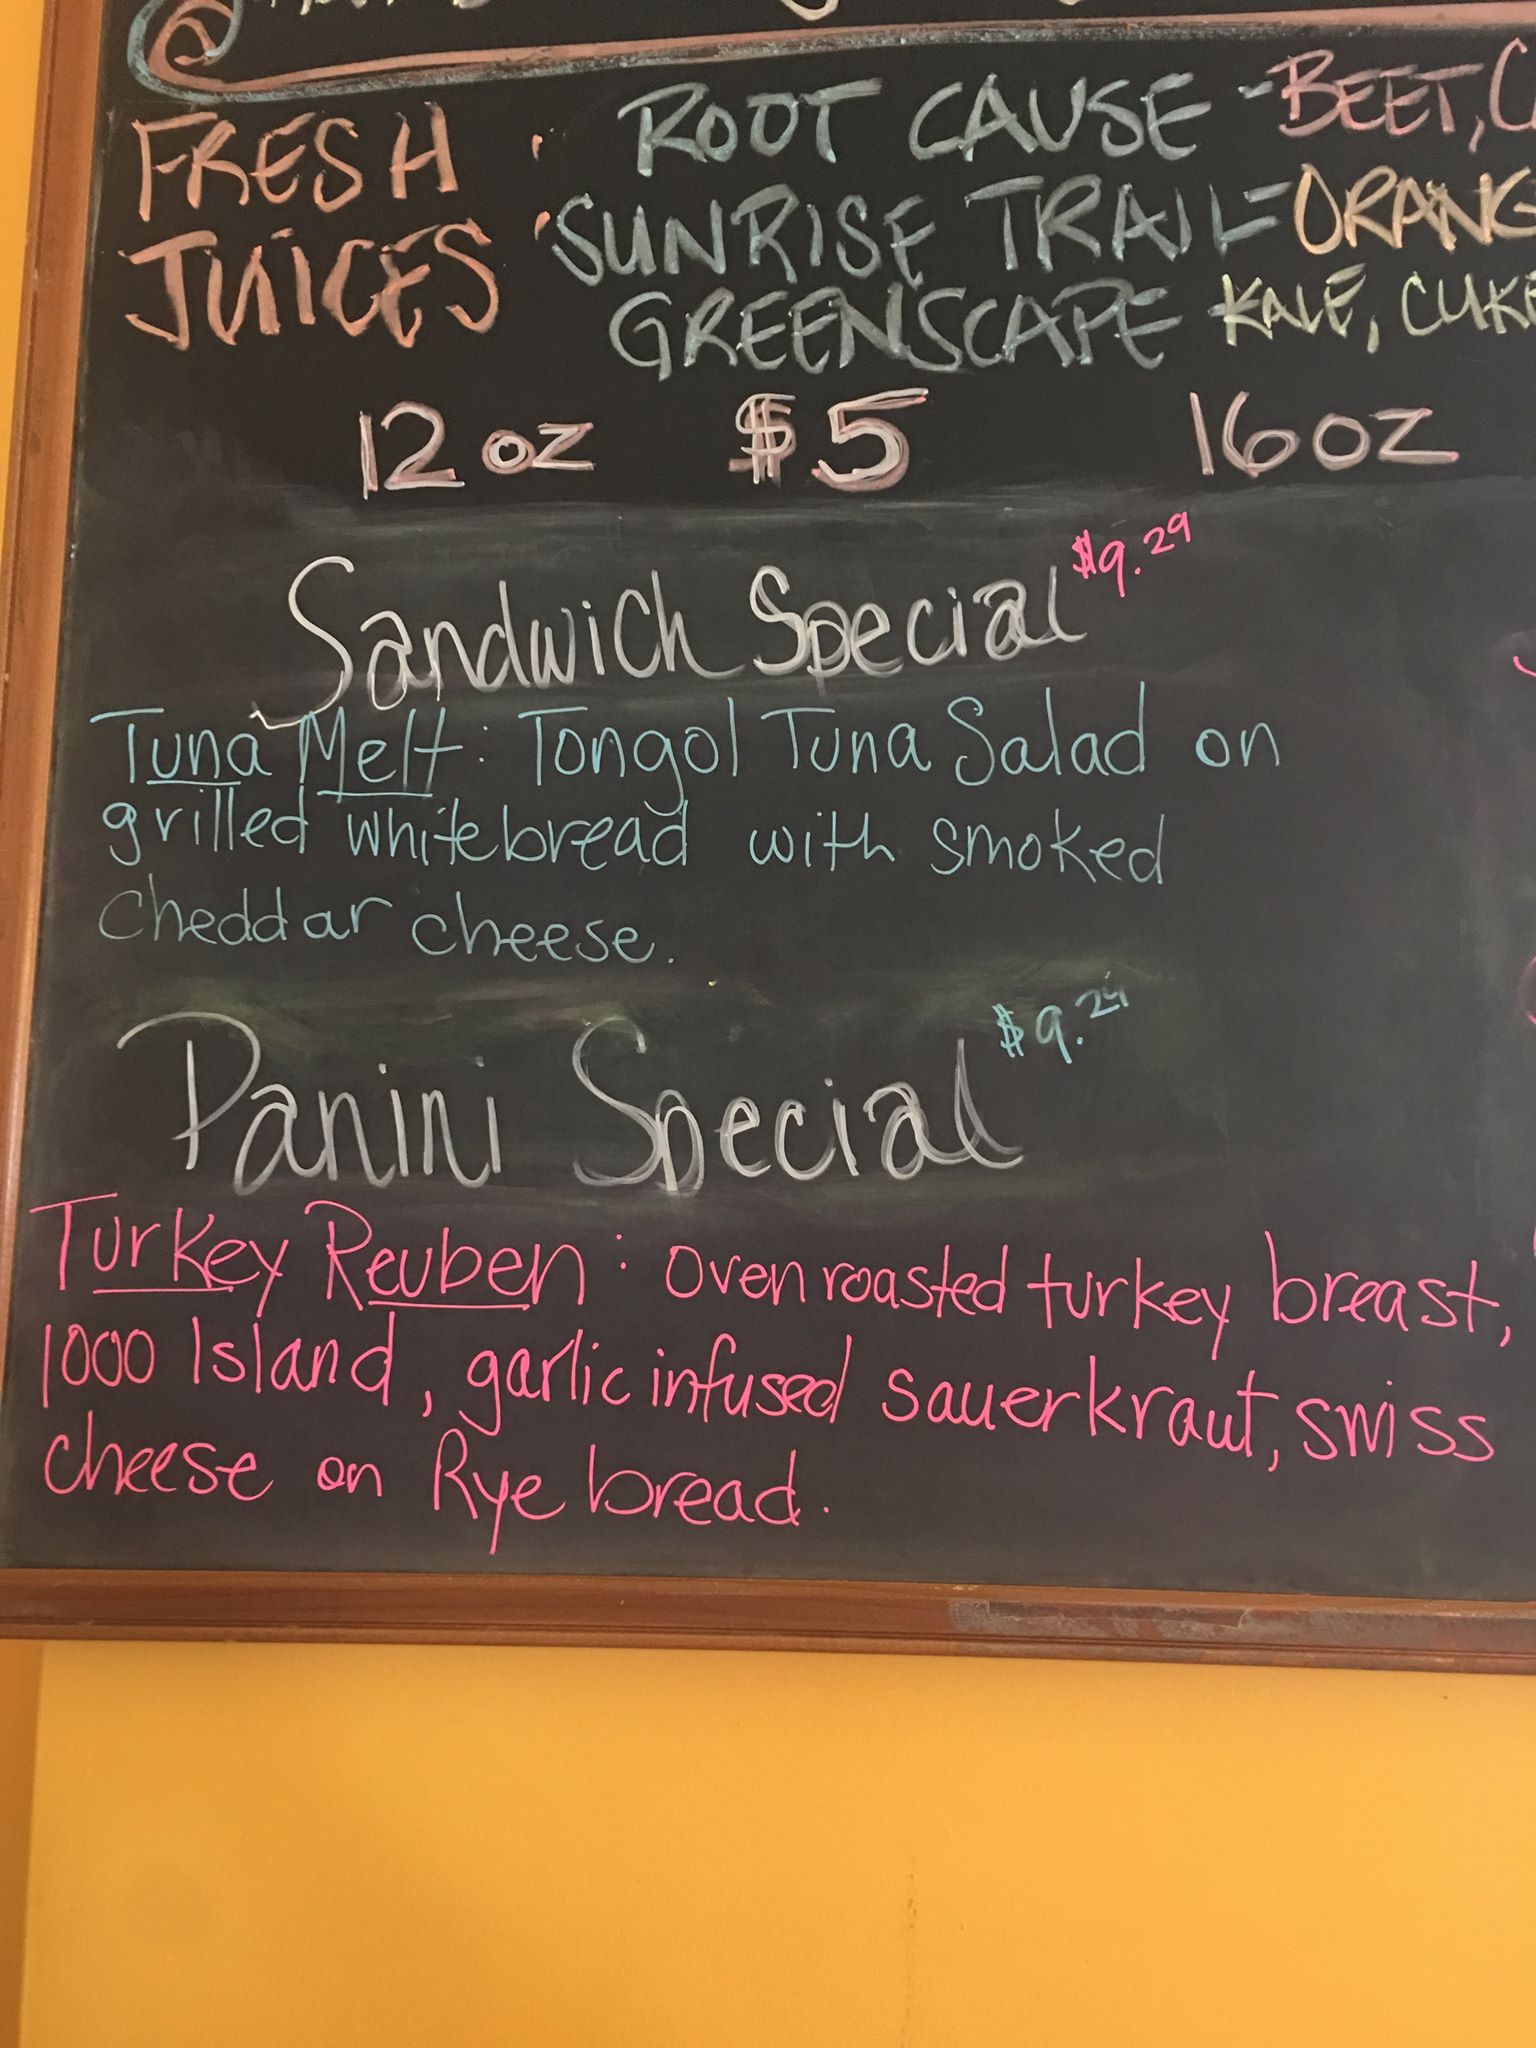 FRESH JUICES
ROOT CAUSE - BEET, C
SUNRISE TRAIL - ORANG
GREENSCAPE - KALE, CUKE
12 oz $5 16 oz
Sandwich Special $9.29
Tuna Melt: Tongol Tuna Salad on
grilled white bread with smoked
cheddar cheese.
Panini Special $9.29
Turkey Reuben: Oven roasted turkey breast,
1000 Island, garlic infused sauerkraut, swiss
cheese on Rye bread.